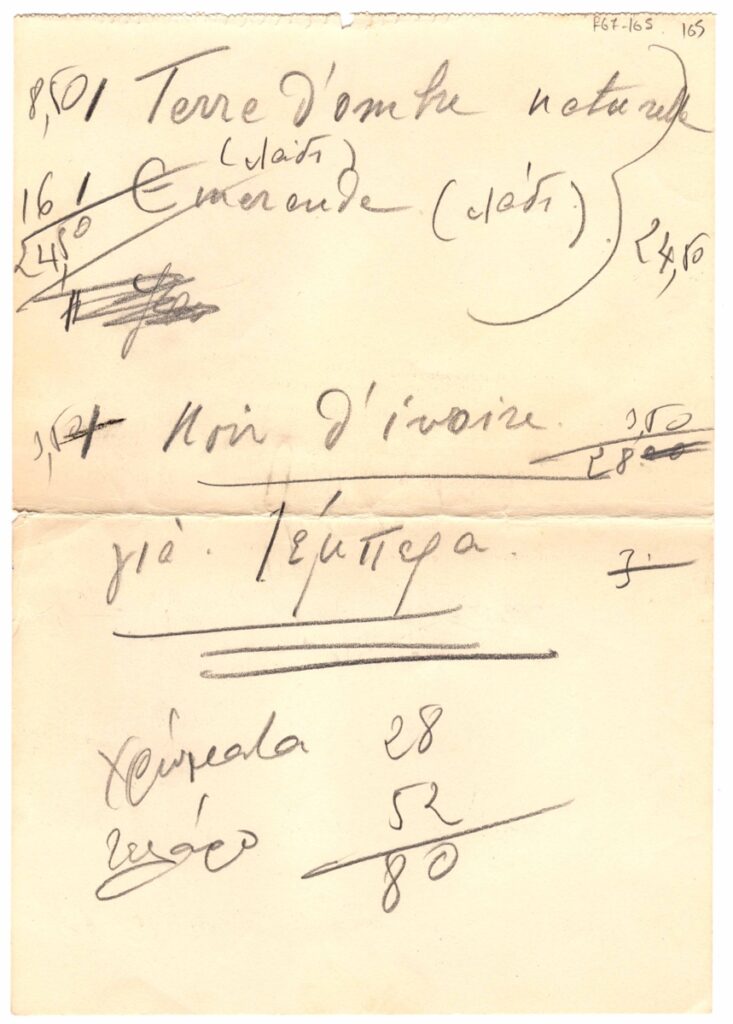 P67-165 165
8,50 1 Terre d'ombre naturelle
(λάδι)
16 1 Emeraude (λάδι)
24,50
24,50
3,50 1 Noir d'ivoire 3,50
28
γιά Τέμπερα. 3.
Χρώματα 28
52
80